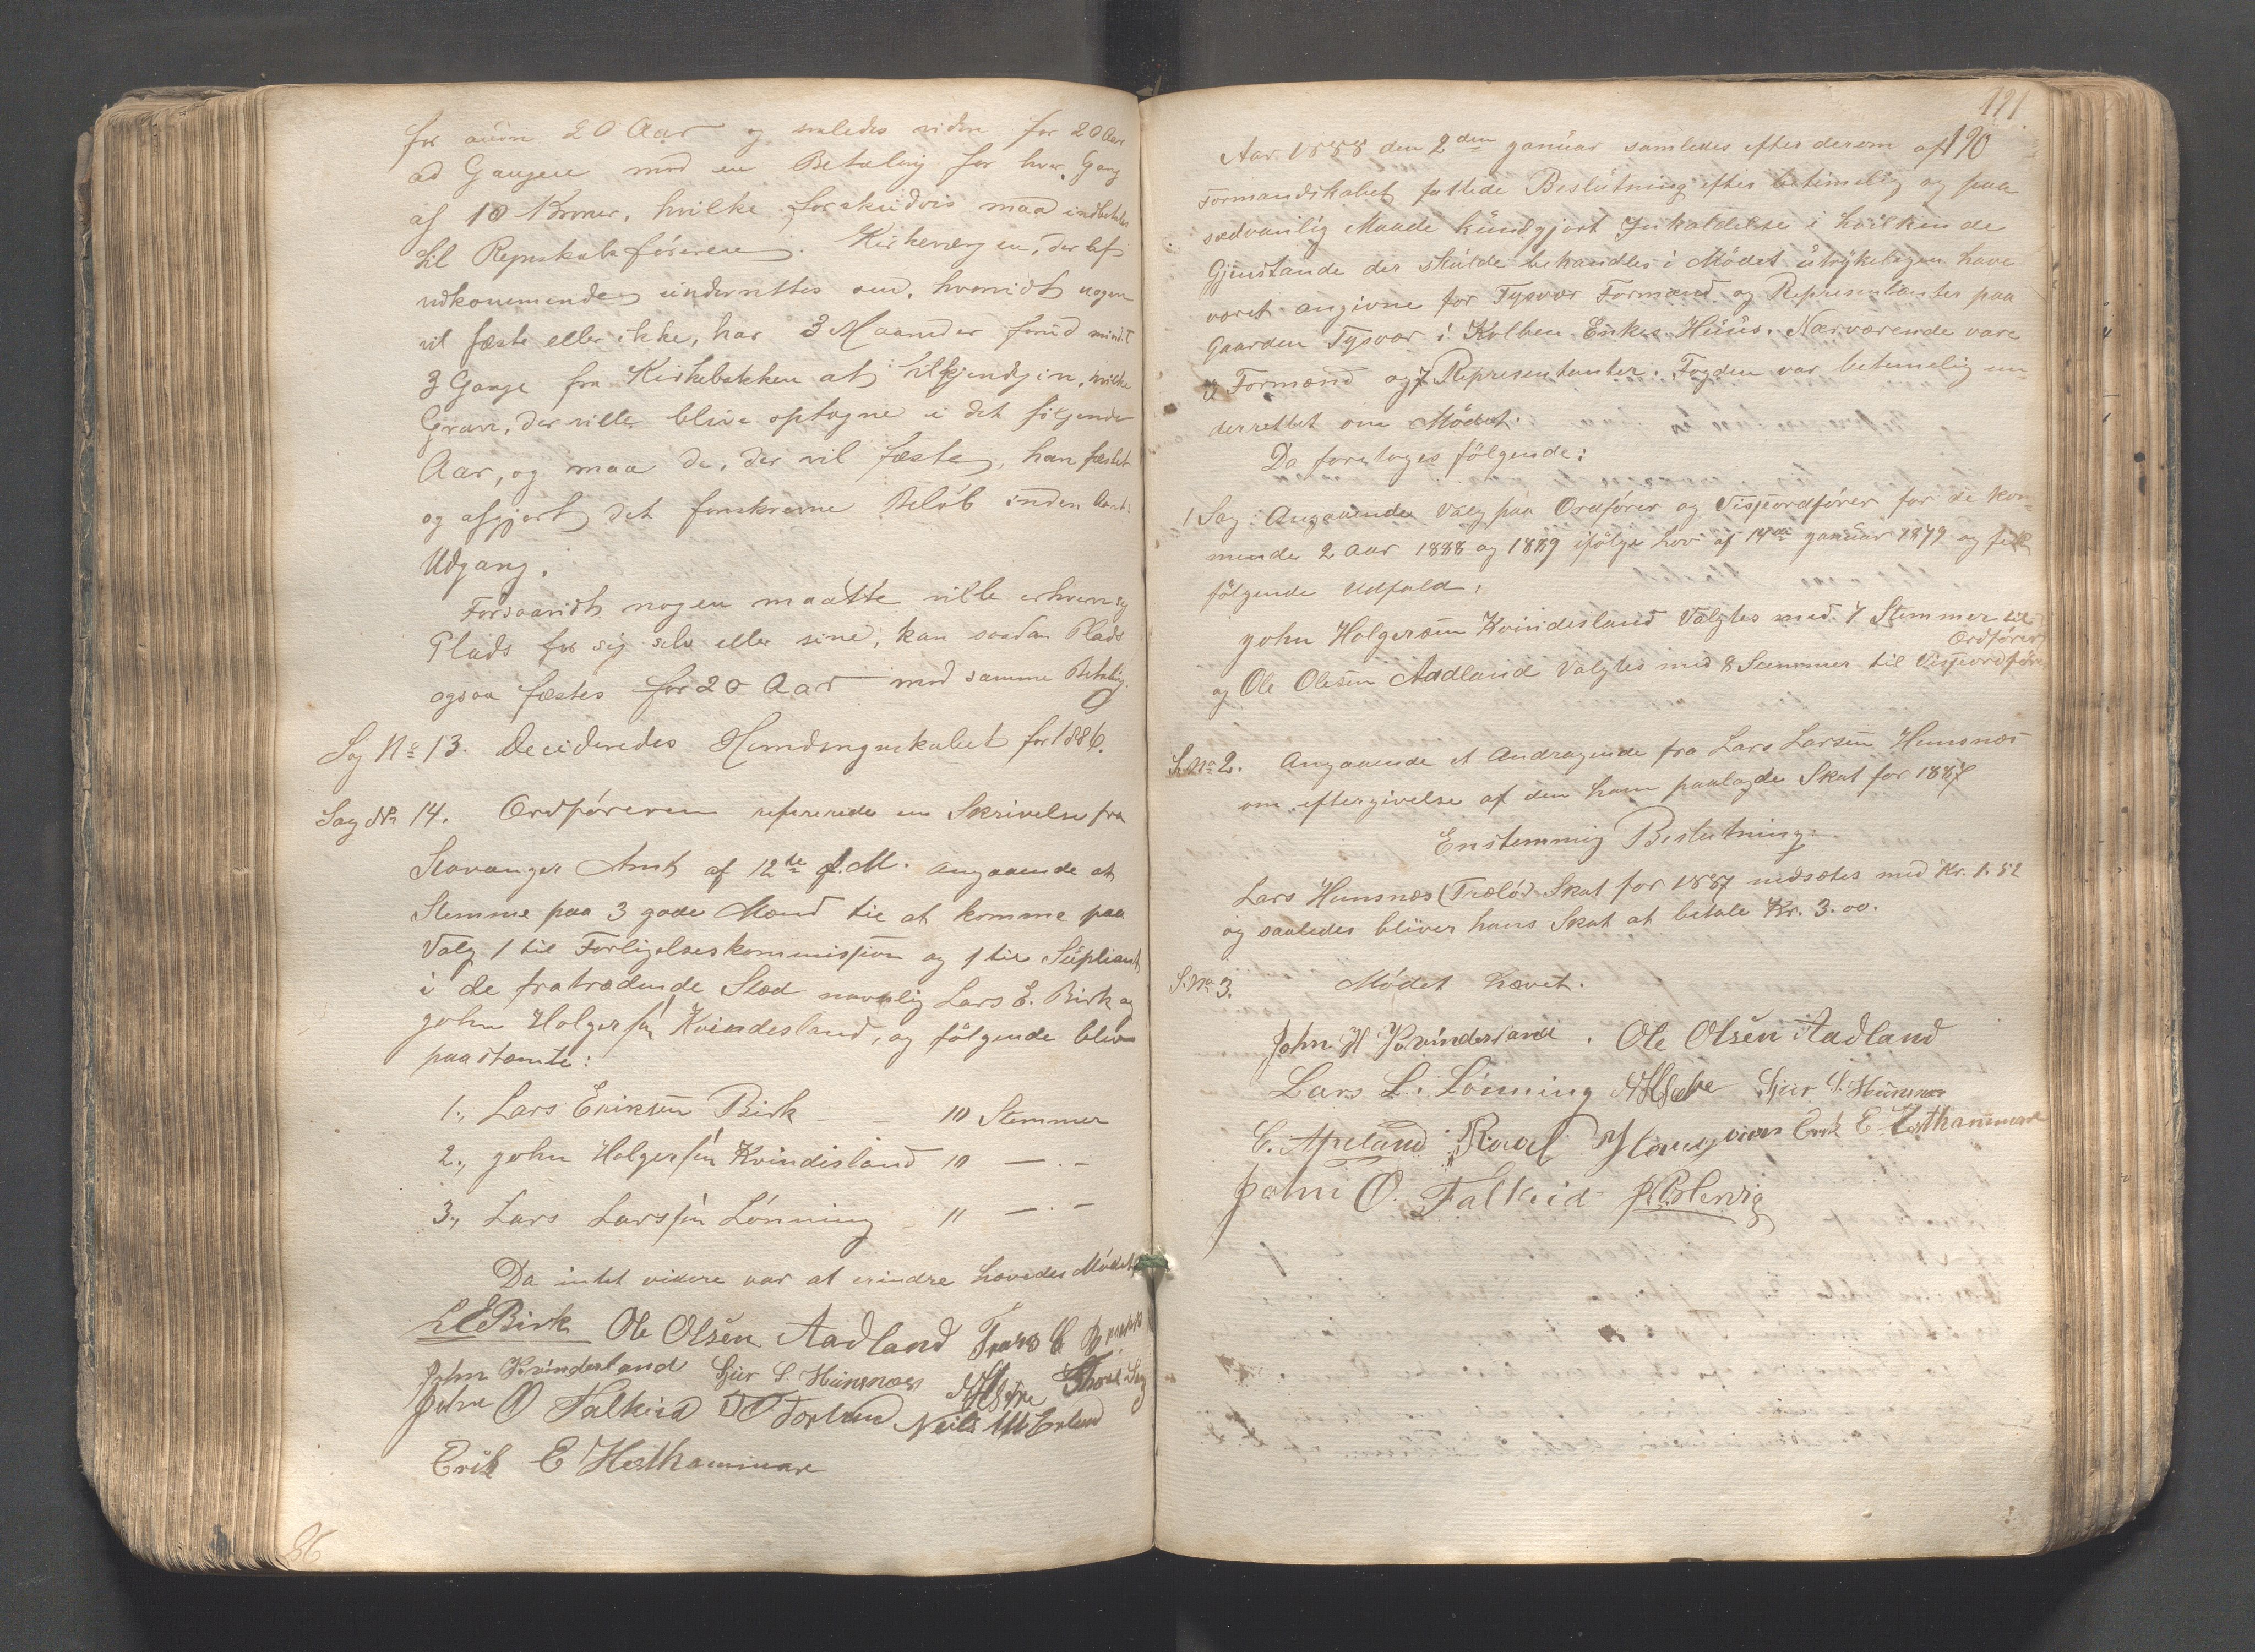 for 20 Aar og saaledes siden for 20 Aar
ad Gangen mod en Betaling for hver Gang
af 10 Kroner, hvilke forskudvis maa indbetales
til Regnskabsføreren. Kirkeværgen, der bef
udkommende underrettes om, hvorvidt nogen
vil fæste eller ikke, har 3 Maaneder forud mindst
3 Gange fra Kirkebakken at tilkjendgive, hvilke
Grave, der ville blive optagne i det følgende
Aar, og maa de, der vil fæste, have fæstet
og afgjort det foreskrevne Beløb inden Aarets
Udgang.
Forsaavidt nogen maatte ville erhverve sig
Plads for sig selv eller sine, kan saadan Plads
ogsaa fæstes for 20 Aar mod samme Betaling.
Sag No 13. Decideredes Herredsregnskabet for 1886.
Sag No 14. Ordføreren refererede en Skrivelse fra
Stavanger Amt af 12te f.M. angaaende at
Stemme paa 3 gode Mænd til at komme paa
Valg 1 til Forligelseskommission og 1 til Supliant
i de fratrædende Sted navnlig Lars E. Birk og
John Holgersen Kvindesland, og følgende blev
paastemte:
1., Lars Eriksen Birk - - 10 Stemmer
2., John Holgersen Kvindisland 10 — . -
3., Lars Larssen Lønning 11 — . -
Da intet videre var at erindre hævedes Mødet
LEBirk Ole Olsen Aadland
John Kvindesland Sjur S. Hunsnæs
John O Falkeid Neils
Erik E Hesthammar
191
Aar 1888 den 2den Januar samledes efter derom af 190
Formandskabet fattede Beslutning efter betimelig og paa
sædvanlig Maade kundgjort Inkaldelse i hvilken de
Gjenstande der skulde behandles i Mødet utrykeligen have
været angivne for Tysvær Formænd og Representanter paa
Gaarden Tysvær i Kolben Enkes Huus. Nærværende vare
Formænd og 7 Representanter. Fogden var betimelig un-
derrettet om Mødet.
Da foretoges følgende:
1 Sag. Angaaende Valg paa Ordfører og Visseordfører for de kom-
mende 2 Aar 1888 og 1889 ifølge Lov af 14de Januar 1879 og fik
følgende Udfald,
John Holgersen Kvindesland Valgtes med 7 Stemmer til
Ordfører
og Ole Olesen Aadland Valgtes med 8 Stemmer til Visseordfører
S. No 2. Angaaende et Andragende fra Lars Larsen Hunsnæs
om eftergivelse af den ham paalagde Skat for 1887
Enstemmig Beslutning:
Lars Hunsnæs (Trælød Skat for 1887 nedsættes med Kr. 1.52
og saaledes bliver hans Skat at betale Kr. 3.00.
S. No 3. Mødet hævet.
John H Kvindesland. Ole Olsen Aadland
Lars L. Lønning Sjur S. Hunsnæs
C. Apeland Erik E Hesthammar
John O. Falkeid